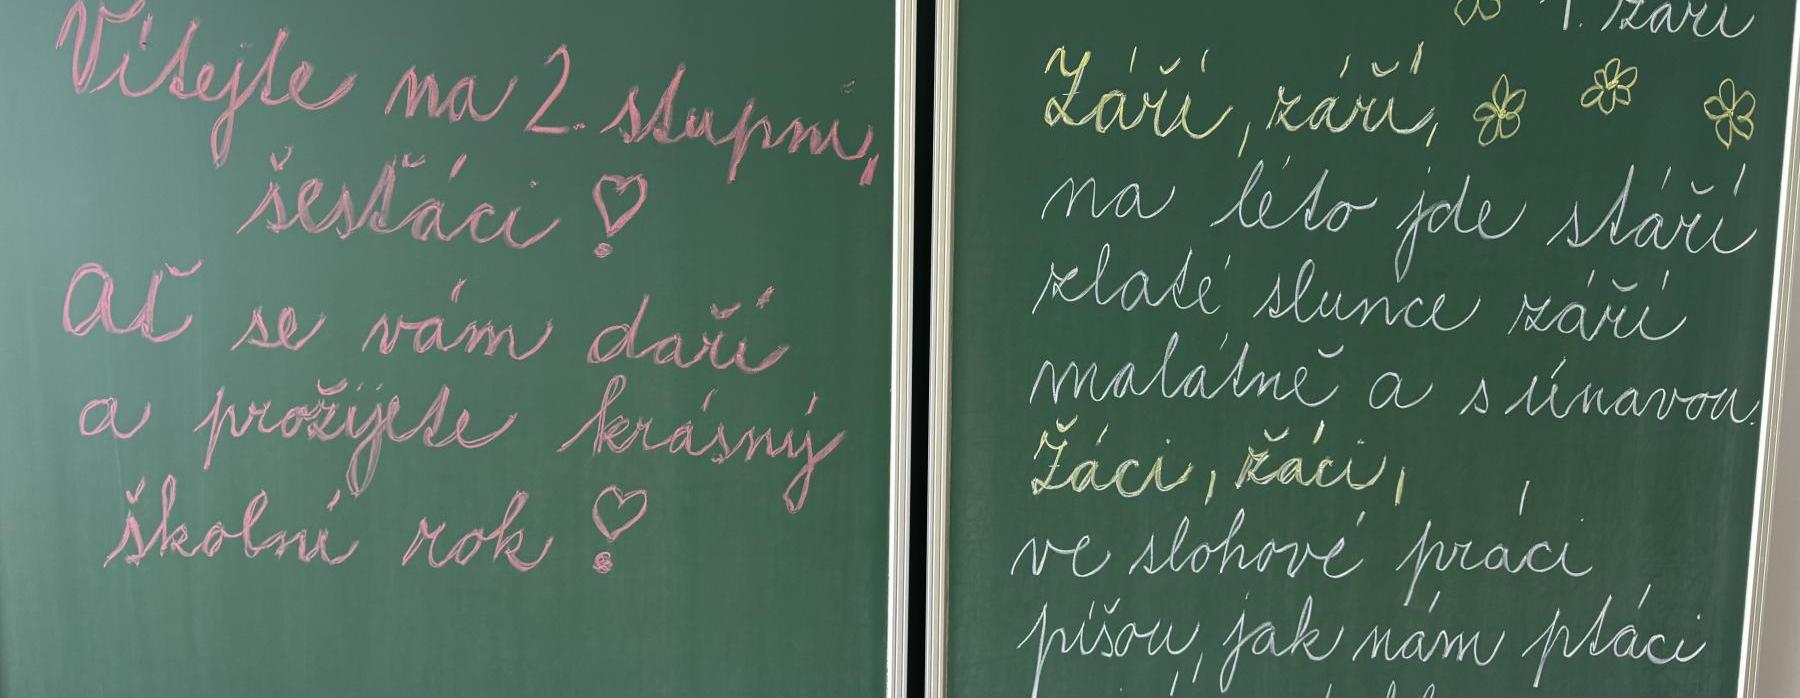 Vítejte na 2. stupni,
šesťáci!
Ať se vám daří
a prožijete krásný
školní rok!
1. září
Září, září,
na léto jde stáří
zlaté slunce září
malátně a s únavou.
Žáci, žáci,
ve slohové práci
píšou, jak nám ptáci